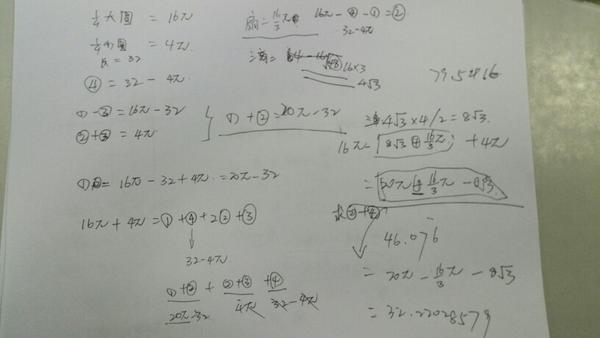 ¼大圓 = 16π
¼小圓 = 4π
長 = 32
④ = 32 - 4π
① - ③ = 16π - 32
② + ③ = 4π
① + ② = 20π - 32
= 16π - 32 + 4π = 20π - 32
16π + 4π = ① + ④ + 2② + ③
32 - 4π
① + ② + ② + ③ + ④
20π - 32 4π 32 - 4π
扇 = 16/3 π
16π - ④ - ① = ②
32 - 4π
16 × 3
4√3
79.58916
= 4√3 × 4 / 2 = 8√3
16π - 8√3 16/3 π + 4π
= 20π 16/3 π - 8√3
46.076
= 20π - 16/3 π - 8√3